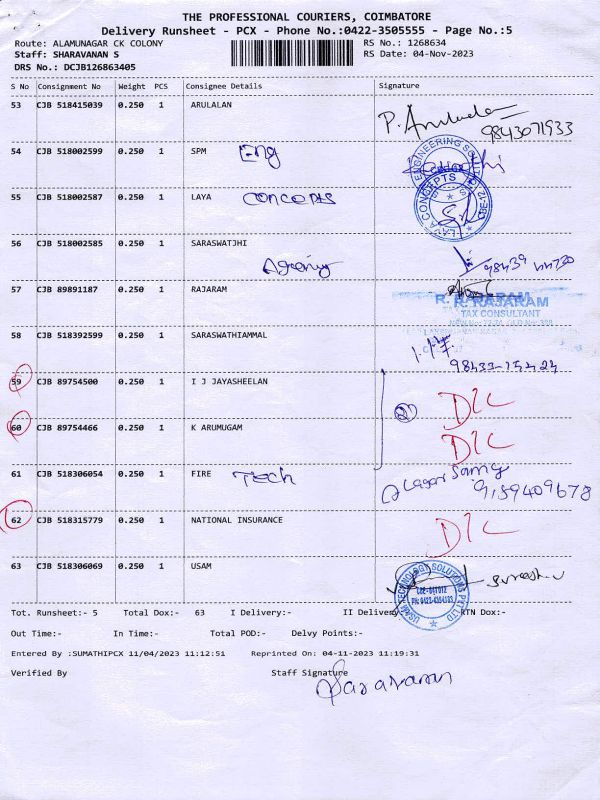 THE PROFESSIONAL COURIERS, COIMBATORE
Delivery Runsheet - PCX - Phone No.:0422-3505555 - Page No.:5
Route: ALAMUNAGAR CK COLONY RS No.: 1268634
Staff: SHARAVANAN S RS Date: 04-Nov-2023
DRS No.: DCJB126863405
S No Consignment No Weight PCS Consignee Details Signature
53 CJB 518415039 0.250 1 ARULALAN
9843071933
54 CJB 518002599 0.250 1 SPM Eng
ENGINEERING
55 CJB 518002587 0.250 1 LAYA concepts
LAYA CONCEPTS
56 CJB 518002585 0.250 1 SARASWATJHI
Agency 98439
57 CJB 89891187 0.250 1 RAJARAM
R. RAJARAM
TAX CONSULTANT
58 CJB 518392599 0.250 1 SARASWATHIAMMAL
59 CJB 89754500 0.250 1 I J JAYASHEELAN D/C
60 CJB 89754466 0.250 1 K ARUMUGAM D/C
61 CJB 518306054 0.250 1 FIRE Tech
Alagar Samy
9159409678
62 CJB 518315779 0.250 1 NATIONAL INSURANCE D/C
63 CJB 518306069 0.250 1 USAM
USAM TECHNOLOGY SOLUTIONS PVT LTD
Tot. Runsheet:- 5 Total Dox:- 63 I Delivery:- II Delivery RTN Dox:-
Out Time:- In Time:- Total POD:- Delvy Points:-
Entered By :SUMATHIPCX 11/04/2023 11:12:51 Reprinted On: 04-11-2023 11:19:31
Verified By Staff Signature
Saravanan